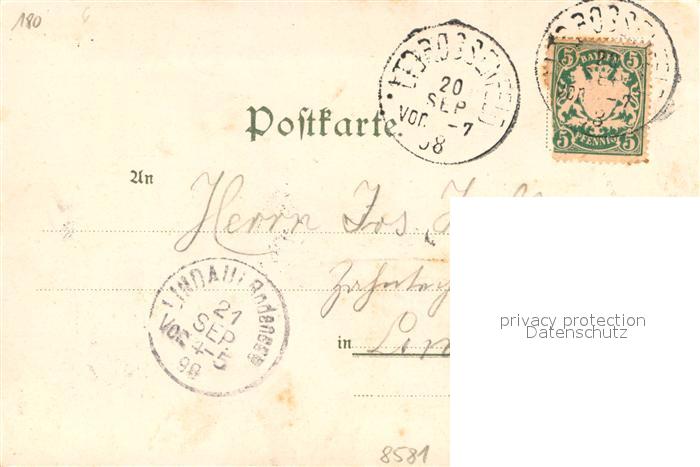 180
5 BAYERN 5
5 PFENNIG 5
20
SEP
VOR. -7
98
Postkarte.
An
Herrn Jos.
LINDAU i. Bodensee
21
SEP
VOR 4-5
98
in Lin
8581
privacy protection
Datenschutz